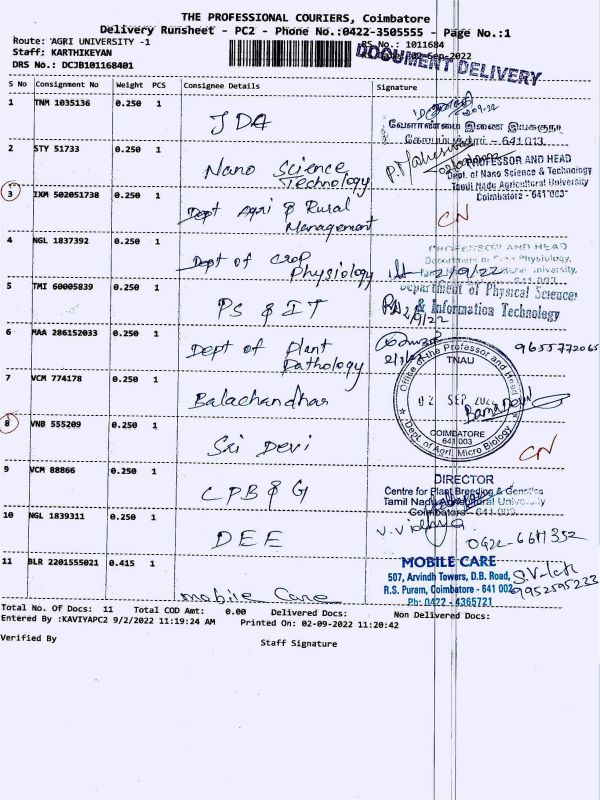 THE PROFESSIONAL COURIERS, Coimbatore
Delivery Runsheet - PC2 - Phone No.:0422-3505555 - Page No.:1
Route: AGRI UNIVERSITY -1
RS No.: 1011684
Staff: KARTHIKEYAN
02-Sep-2022
DOCUMENT DELIVERY
DRS No.: DCJB101168401
S No Consignment No Weight PCS Consignee Details Signature
1 TNM 1035136 0.250 1 JDA
வேளாண்மை இணை இயக்குநர்
641 013
2 STY 51733 0.250 1 Nano Science
Technology
P. Maheswari
PROFESSOR AND HEAD
Dept. of Nano Science & Technology
Tamil Nadu Agricultural University
Coimbatore - 641 003
3 IXM 502051738 0.250 1 Dept Agri & Rural
Management
CN
4 NGL 1837392 0.250 1 Dept of Crop
Physiology
PROFESSOR AND HEAD
Department of Crop Physiology,
2/9/22
5 TMI 60005839 0.250 1 PS & IT
Department of Physical Science
& Information Technology
2/9/22
6 MAA 286152033 0.250 1 Dept of Plant
Pathology
9655772065
7 VCM 774178 0.250 1 Balachandhar
Office of the Professor and Head
TNAU
02 SEP 2022
COIMBATORE
641 003
Dept. of Agri. Micro Biology
8 VNB 555209 0.250 1 Sri Devi
CN
9 VCM 88866 0.250 1 CPB & G
DIRECTOR
Centre for Plant Breeding & Genetics
Tamil Nadu Agricultural University
Coimbatore - 641 003
10 NGL 1839311 0.250 1 DEE
V. Vidhya
0422-6611352
11 BLR 2201555021 0.415 1 mobile Care
MOBILE CARE
507, Arvindh Towers, D.B. Road,
R.S. Puram, Coimbatore - 641 002
Ph: 0422 - 4365721
9952595233
Total No. Of Docs: 11 Total COD Amt: 0.00 Delivered Docs: Non Delivered Docs:
Entered By :KAVIYAPC2 9/2/2022 11:19:24 AM Printed On: 02-09-2022 11:20:42
Verified By
Staff Signature